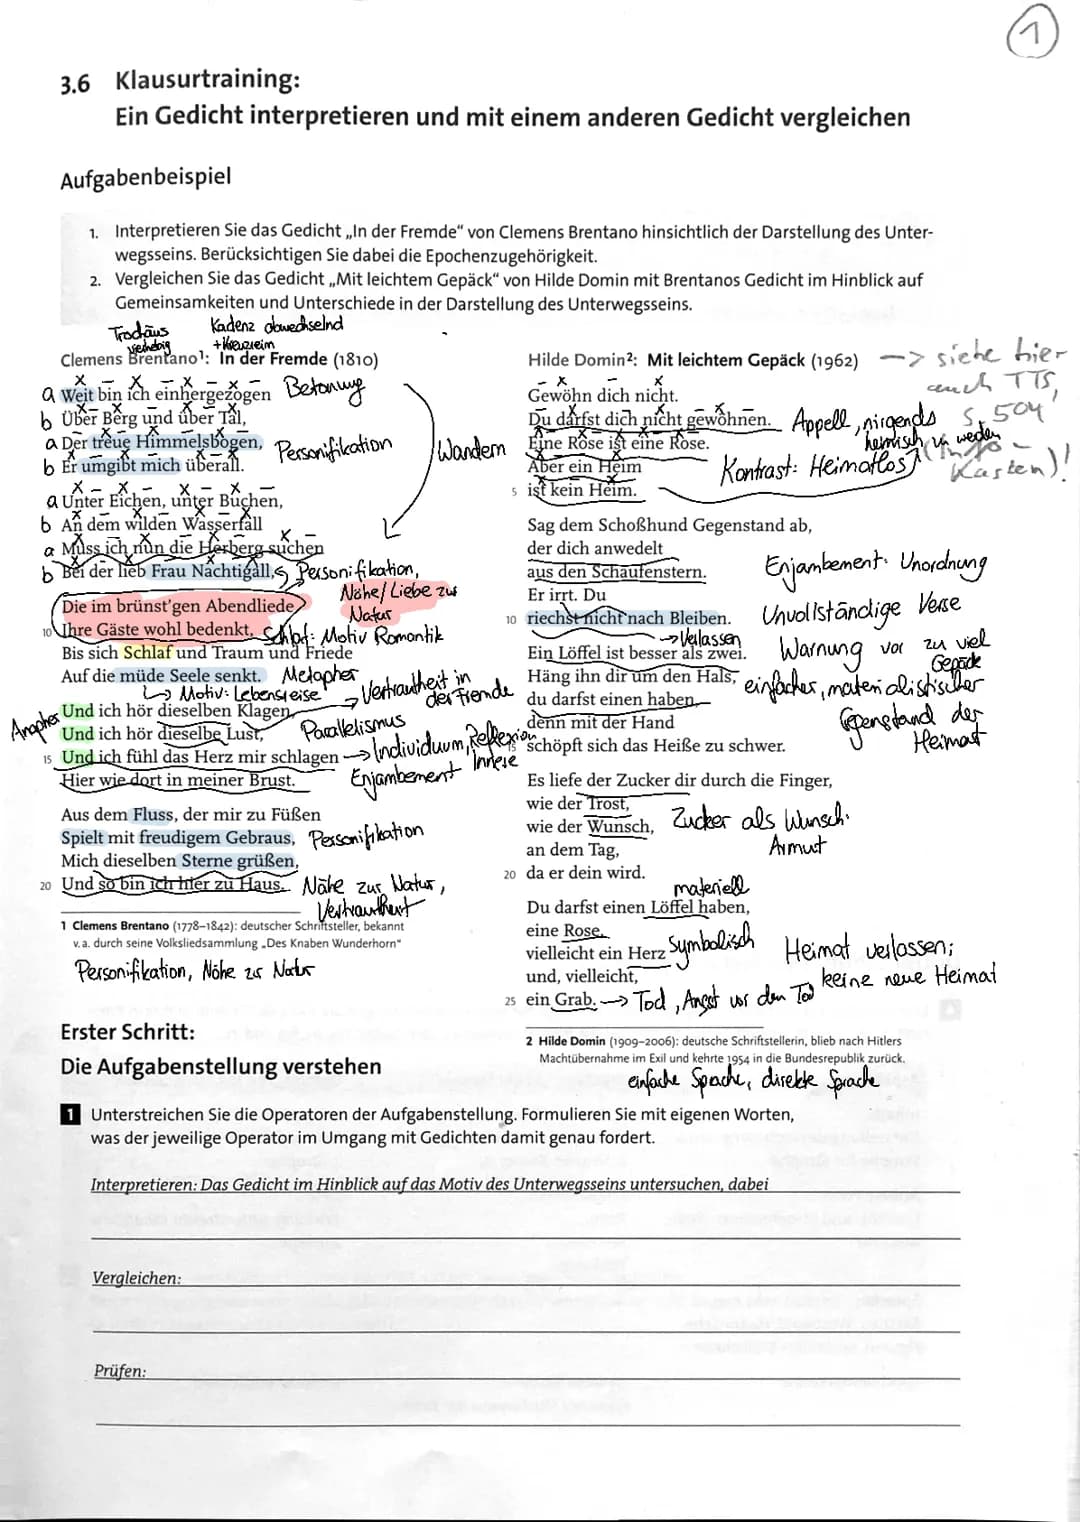 1
3.6 Klausurtraining:
Ein Gedicht interpretieren und mit einem anderen Gedicht vergleichen
Aufgabenbeispiel
1. Interpretieren Sie das Gedicht „In der Fremde“ von Clemens Brentano hinsichtlich der Darstellung des Unter-
wegsseins. Berücksichtigen Sie dabei die Epochenzugehörigkeit.
2. Vergleichen Sie das Gedicht „Mit leichtem Gepäck“ von Hilde Domin mit Brentanos Gedicht im Hinblick auf
Gemeinsamkeiten und Unterschiede in der Darstellung des Unterwegsseins.
Trochäus
vierhebig
Kadenz abwechselnd
+Kreuzreim
Clemens Brentano¹: In der Fremde (1810)
a Weit bin ich einhergezogen Betonung
b Über Berg und über Tal,
a Der treue Himmelsbogen, Personifikation
b Er umgibt mich überall.
Wandern
a Unter Eichen, unter Buchen,
b An dem wilden Wasserfall
a Muss ich nun die Herberg suchen
b Bei der lieb Frau Nachtigall, Personifikation,
Nähe/Liebe zur
Natur
Die im brünst'gen Abendliede
10 Ihre Gäste wohl bedenkt, Schlaf: Motiv Romantik
Bis sich Schlaf und Traum und Friede
Auf die müde Seele senkt. Metapher
↳ Motiv: Lebensreise → Vertrautheit in
der Fremde
Anapher Und ich hör dieselben Klagen,
Und ich hör dieselbe Lust, Parallelismus
15 Und ich fühl das Herz mir schlagen → Individuum, Reflexion
Innere
Hier wie dort in meiner Brust. Enjambement
Aus dem Fluss, der mir zu Füßen
Spielt mit freudigem Gebraus, Personifikation
Mich dieselben Sterne grüßen,
20 Und so bin ich hier zu Haus. Nähe zur Natur,
Vertrautheit
1 Clemens Brentano (1778–1842): deutscher Schriftsteller, bekannt
v. a. durch seine Volksliedsammlung „Des Knaben Wunderhorn“
Personifikation, Nähe zur Natur
Hilde Domin²: Mit leichtem Gepäck (1962) → siehe hier
auch TTS,
S. 504
(Info-
Kasten)!
Gewöhn dich nicht.
Du darfst dich nicht gewöhnen. Appell, nirgends
heimisch zu werden
Eine Rose ist eine Rose.
Aber ein Heim
5 ist kein Heim.
Kontrast: Heimatlos
Sag dem Schoßhund Gegenstand ab,
der dich anwedelt
aus den Schaufenstern.
Er irrt. Du
10 riechst nicht nach Bleiben.
→ Verlassen
Enjambement: Unordnung
Unvollständige Verse
Ein Löffel ist besser als zwei.
Häng ihn dir um den Hals,
du darfst einen haben,
denn mit der Hand
15 schöpft sich das Heiße zu schwer.
Warnung vor zu viel
Gepäck
einfacher, materialistischer
Gegenstand der
Heimat
Es liefe der Zucker dir durch die Finger,
wie der Trost,
wie der Wunsch,
an dem Tag,
20 da er dein wird.
Zucker als Wunsch.
Armut
materiell
Du darfst einen Löffel haben,
eine Rose,
vielleicht ein Herz symbolisch
und, vielleicht,
25 ein Grab. → Tod, Angst vor den Tod
Heimat verlassen;
keine neue Heimat
2 Hilde Domin (1909–2006): deutsche Schriftstellerin, blieb nach Hitlers
Machtübernahme im Exil und kehrte 1954 in die Bundesrepublik zurück.
einfache Sprache, direkte Sprache
Erster Schritt:
Die Aufgabenstellung verstehen
1 Unterstreichen Sie die Operatoren der Aufgabenstellung. Formulieren Sie mit eigenen Worten,
was der jeweilige Operator im Umgang mit Gedichten damit genau fordert.
Interpretieren: Das Gedicht im Hinblick auf das Motiv des Unterwegsseins untersuchen, dabei
Vergleichen:
Prüfen: